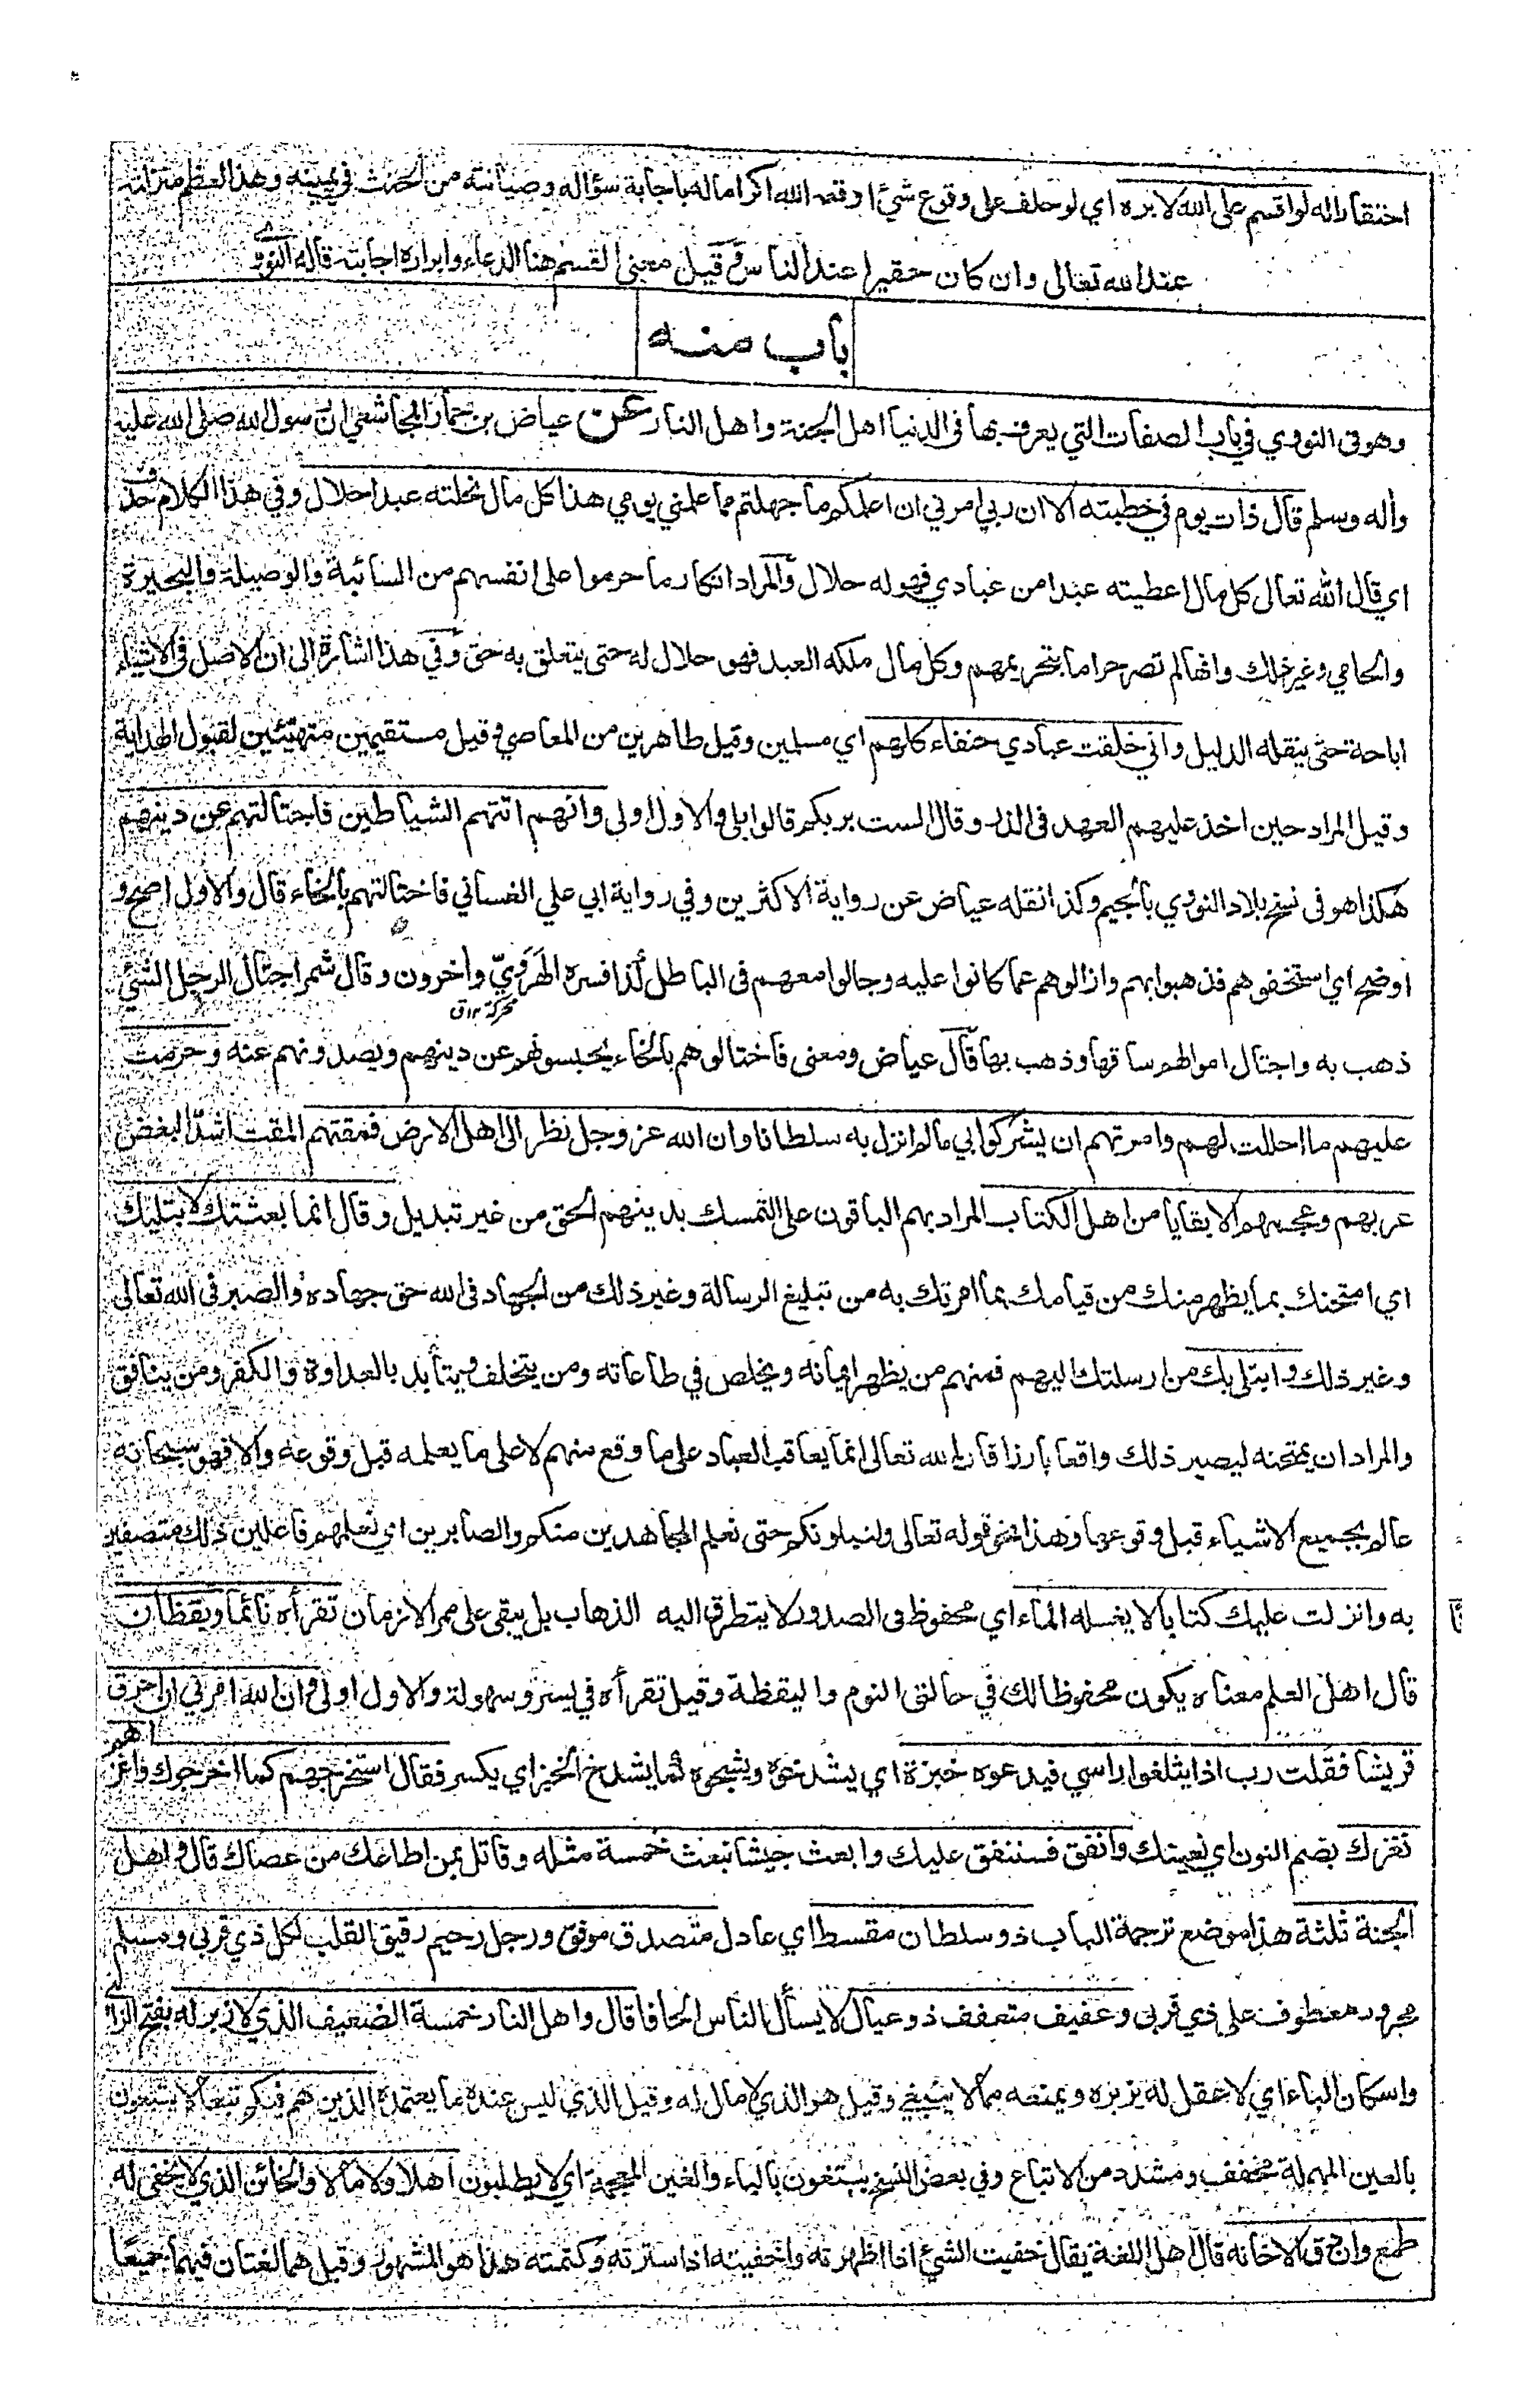 احتقارا له لو اقسم على الله لابره اي لو حلف على وقوع شئ اوقعه الله اكراما له باجابة سؤاله وصيانته من الحنث في يمينه وهذا لعظم منزلته
عند الله تعالى وان كان حقيرا عند الناس وقيل معنى القسم هنا الدعاء وابراره اجابته قاله النووي
باب منه
وهو في النووي في باب الصفات التي يعرف بها في الدنيا اهل الجنة واهل النار عن عياض بن حمار المجاشعي ان رسول الله صلى الله عليه
واله وسلم قال ذات يوم في خطبته الا ان ربي امرني ان اعلمكم ما جهلتم مما علمني يومي هذا كل مال نحلته عبدا حلال وفي هذا الكلام حذف
اي قال الله تعالى كل مال اعطيته عبدا من عبادي فهو له حلال والمراد انكار ما حرموا على انفسهم من السائبة والوصيلة والبحيرة
والحامي وغير ذلك وانها لم تصر حراما بتحريمهم وكل مال ملكه العبد فهو حلال له حتى يتعلق به حق وفي هذا اشارة الى ان الاصل في الاشياء
اباحة حتى ينقله الدليل واني خلقت عبادي حنفاء كلهم اي مسلمين وقيل طاهرين من المعاصي وقيل مستقيمين متهيئين لقبول الهداية
وقيل المراد حين اخذ عليهم العهد في الذر وقال الست بربكم قالوا بلى والاول اولى وانهم اتتهم الشياطين فاجتالتهم عن دينهم
هكذا هو في نسخ بلاد النووي بالجيم وكذا نقله عياض عن رواية الاكثرين وفي رواية ابي علي الغساني فاختالتهم بالخاء قال والاول اصح و
اوضح اي استخفوهم فذهبوا بهم وازالوهم عما كانوا عليه وجالوا معهم في الباطل كذا فسره الهَرَويّ واخرون وقال شمر اجتال الرجل الشئ
محركة ١٢ ق
ذهب به واجتال اموالهم ساقها وذهب بها قال عياض ومعنى فاختالوهم بالخاء يحبسونهم عن دينهم ويصدونهم عنه وحرمت
عليهم ما احللت لهم وامرتهم ان يشركوا بي ما لم انزل به سلطانا وان الله عز وجل نظر الى اهل الارض فمقتهم المقت اشدّ البغض
عربهم وعجمهم الا بقايا من اهل الكتاب المراد بهم الباقون على التمسك بدينهم الحق من غير تبديل وقال انما بعثتك لابتليك
اي امتحنك بما يظهر منك من قيامك بما امرتك به من تبليغ الرسالة وغير ذلك من الجهاد في الله حق جهاده والصبر في الله تعالى
وغير ذلك وابتلي بك من ارسلتك اليهم فمنهم من يظهر ايمانه ويخلص في طاعاته ومن يتخلف ويتأبد بالعداوة والكفر ومن ينافق
والمراد ان يمتحنه ليصير ذلك واقعا بارزا فان الله تعالى انما يعاقب العباد على ما وقع منهم لا على ما يعلمه قبل وقوعه والا فهو سبحانه
عالم بجميع الاشياء قبل وقوعها وهذا نحو قوله تعالى ولنبلونكم حتى نعلم المجاهدين منكم والصابرين اي نعلمهم فاعلين ذلك متصفين
به وانزلت عليك كتابا لا يغسله الماء اي محفوظ في الصدور لا يتطرق اليه الذهاب بل يبقى على مر الازمان تقرأه نائما ويقظان
قال اهل العلم معناه يكون محفوظا لك في حالتي النوم واليقظة وقيل تقرأه في يسر وسهولة والاول اولى وان الله امرني ان احرق
قريشا فقلت رب اذا يثلغوا راسي فيدعوه خبزة اي يشدخوه ويشجوه كما يشدخ الخبز اي يكسر فقال استخرجهم كما اخرجوك واغزهم
نغزك بضم النون اي نعينك وانفق فسننفق عليك وابعث جيشا نبعث خمسة مثله وقاتل بمن اطاعك من عصاك قال واهل
الجنة ثلثة هذا موضع ترجمة الباب ذو سلطان مقسط اي عادل متصدق موفق ورجل رحيم رقيق القلب لكل ذي قربى ومسلم
مجرور معطوف على ذي قربى وعفيف متعفف ذو عيال لا يسأل الناس الحافا قال واهل النار خمسة الضعيف الذي لا زبر له بفتح الزاي
واسكان الباء اي لا عقل له يزبره ويمنعه مما لا ينبغي وقيل هو الذي لا مال له وقيل الذي ليس عنده ما يعتمده الذين هم فيكم تبعا لا يتبعون
بالعين المهملة مخفف ومشدد من الاتباع وفي بعض النسخ يبتغون بالباء والغين المعجمة اي لا يطلبون اهلا ولا مالا والخائن الذي لا يخفى له
طمع وان دق الا خانه قال اهل اللغة يقال خفيت الشئ اذا اظهرته واخفيته اذا سترته وكتمته هذا هو المشهور وقيل هما لغتان فيهما جميعا